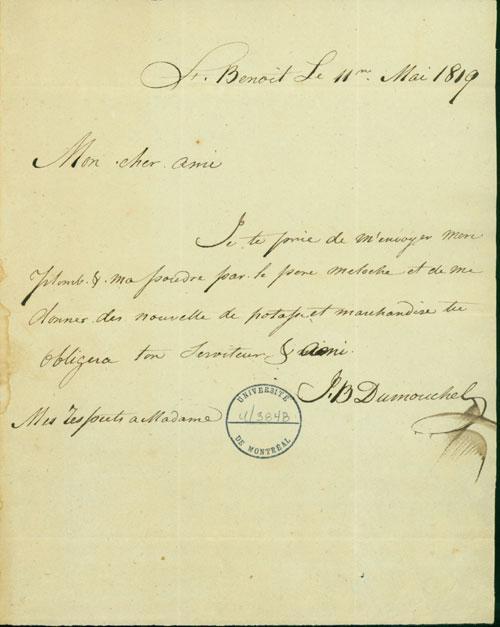 St. Benoit Le 11me Mai 1819
Mon cher ami
Je te prie de m'envoyer mon
plomb & ma poudre par le pere meloche et de me
donner des nouvelle de potasse et marchandise tu
obligera ton serviteur & ami
J.B Dumouchel
Mes respects a Madame
UNIVERSITÉ
U/3848
DE MONTRÉAL